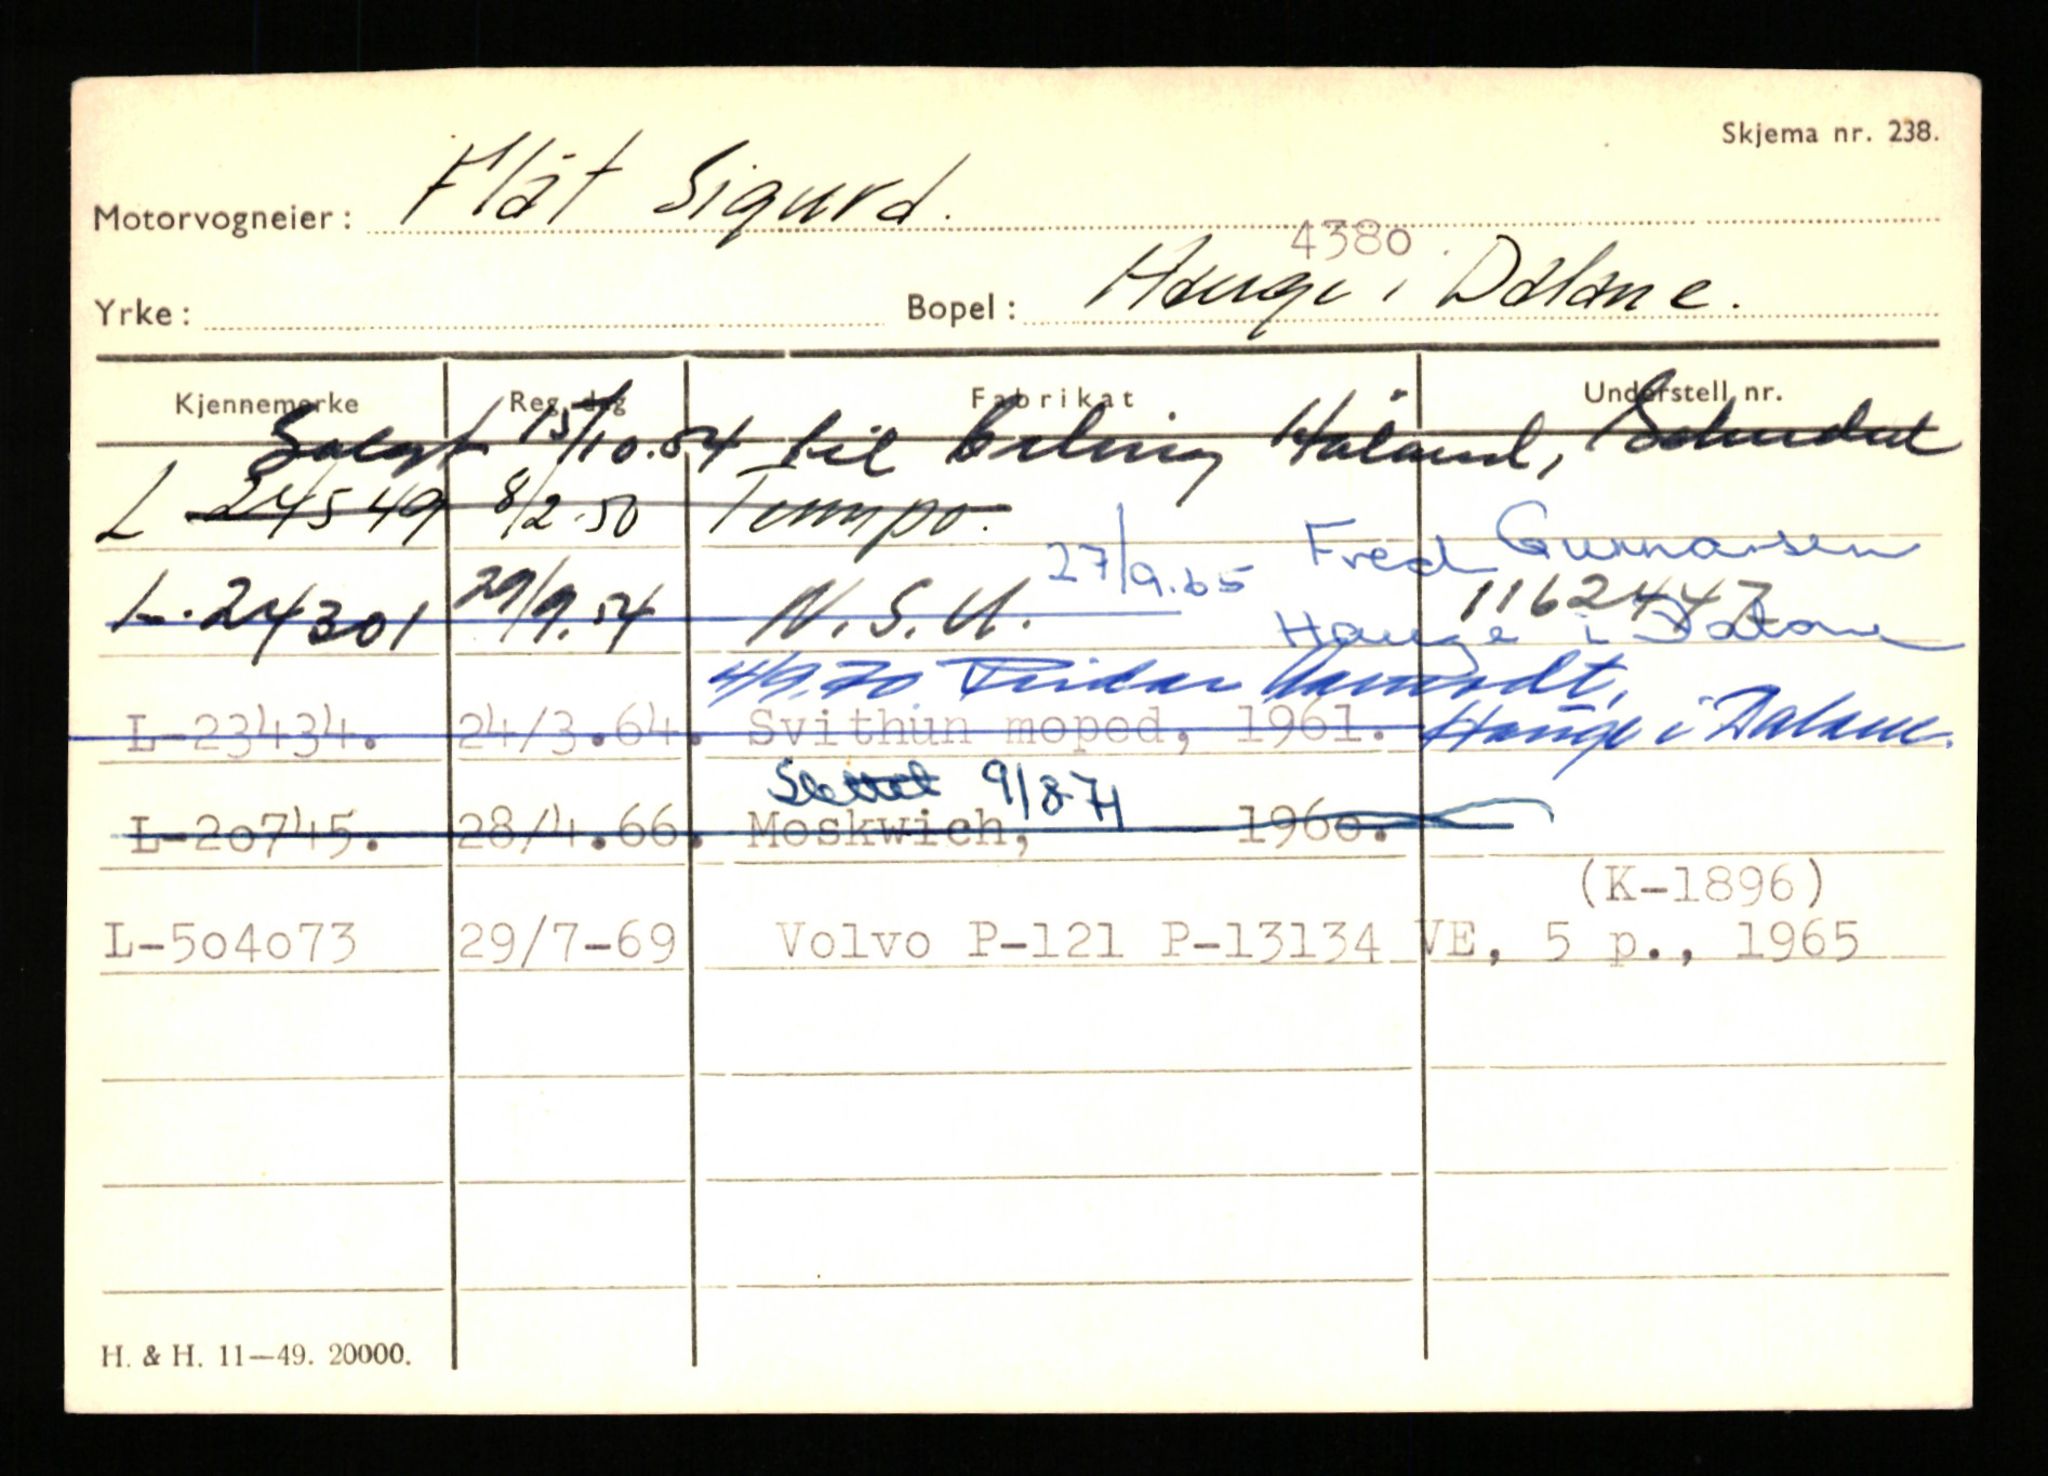 Skjema nr. 238.
Motorvogneier: Flåt Sigurd.
4380
Yrke: Bopel: Hauge i Dalane.
Kjennemerke Reg. dag Fabrikat Understell nr.
Solgt 15/10.54 til Erling Håland,
L 24549 8/2.50 Tempo.
27/9.65 Fred Gunnarsen
L. 24301 29/9.54 N.S.U. 1162447
Hauge i Dalane
4/9.70 Reidar
L-23434. 24/3.64. Svithun moped, 1961. Hauge i Dalane.
Slettet 9/8-71
L-20745. 28/4.66. Moskwich, 1960.
(K-1896)
L-504073 29/7-69 Volvo P-121 P-13134 VE, 5 p., 1965
H. & H. 11—49. 20000.